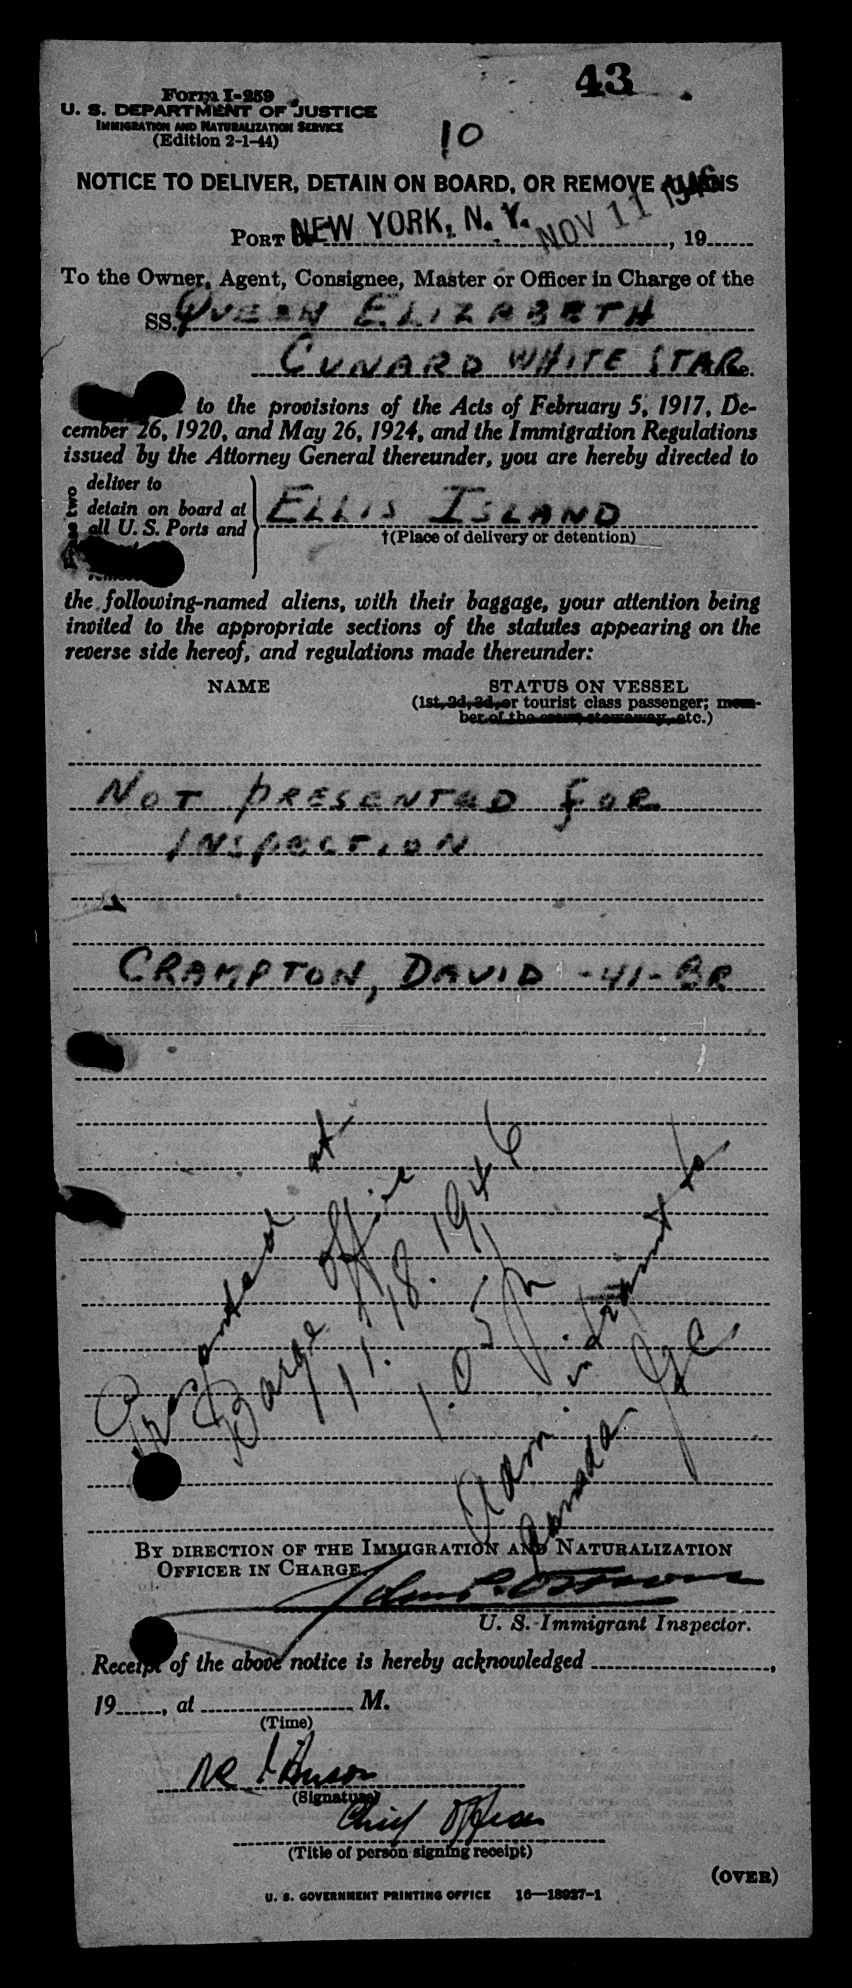 43
Form I-259
U. S. DEPARTMENT OF JUSTICE
IMMIGRATION AND NATURALIZATION SERVICE
(Edition 2-1-44)
10
NOTICE TO DELIVER, DETAIN ON BOARD, OR REMOVE ALIENS
PORT NEW YORK, N. Y. NOV 11 1946, 19
To the Owner, Agent, Consignee, Master or Officer in Charge of the
SS. QUEEN ELIZABETH
CUNARD WHITE STAR
to the provisions of the Acts of February 5, 1917, De-
cember 26, 1920, and May 26, 1924, and the Immigration Regulations
issued by the Attorney General thereunder, you are hereby directed to
deliver to
detain on board at
all U. S. Ports and
ELLIS ISLAND
†(Place of delivery or detention)
two
the following-named aliens, with their baggage, your attention being
invited to the appropriate sections of the statutes appearing on the
reverse side hereof, and regulations made thereunder:
NAME STATUS ON VESSEL
(1st, 2d, 3d, or tourist class passenger; mem-
ber of the crew, stowaway, etc.)
NOT PRESENTED FOR
INSPECTION
CRAMPTON, DAVID - 41 - BR
Presented at
Barge Office
11.18.1946
1.05 PM
Adm. in transit to
Canada
BY DIRECTION OF THE IMMIGRATION AND NATURALIZATION
OFFICER IN CHARGE
U. S. Immigrant Inspector.
Receipt of the above notice is hereby acknowledged ,
19 , at M.
(Time)
(Signature)
Chief Officer
(Title of person signing receipt)
(OVER)
U. S. GOVERNMENT PRINTING OFFICE 16—18937-1